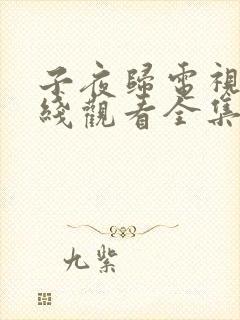 子夜歸電視
綫觀看全集
九紫